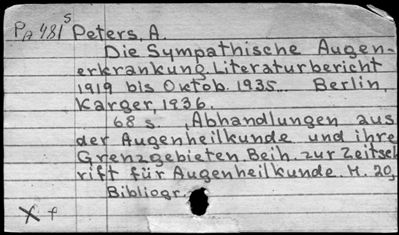 PA 481s Peters, A.
Die Sympathische Augen-
erkrankung. Literaturbericht
1919 bis Oktob. 1935. Berlin,
Karger, 1936.
68 s. (Abhandlungen aus
der Augenheilkunde und ihre
Grenzgebieten. Beih. zur Zeitsch
rift für Augenheilkunde. H. 20)
Bibliogr.
X +